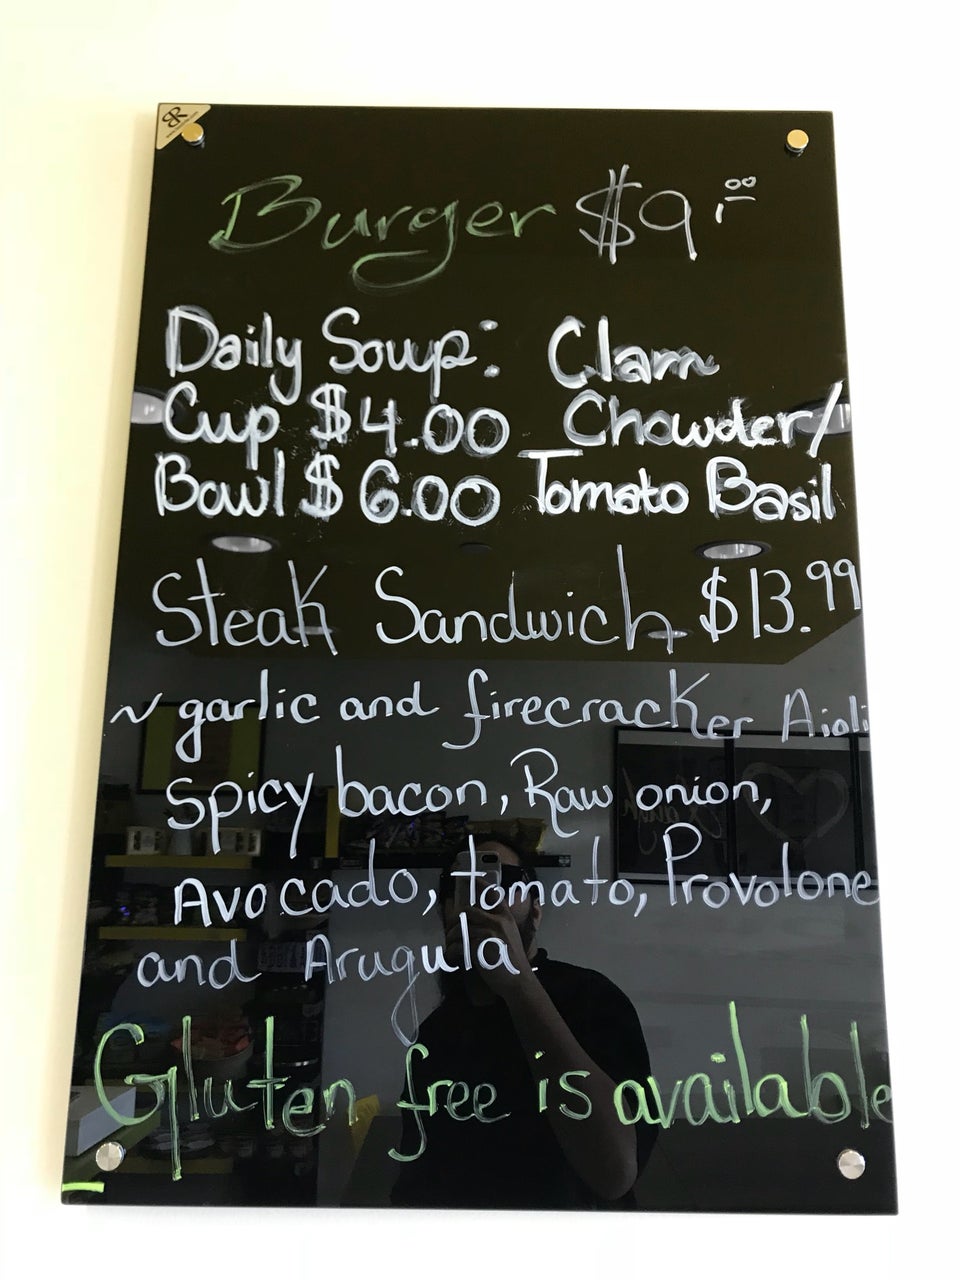 Burger $9.00
Daily Soup: Clam
Cup $4.00 Chowder/
Bowl $6.00 Tomato Basil
Steak Sandwich $13.99
~ garlic and firecracker Aioli
Spicy bacon, Raw onion,
Avocado, tomato, Provolone
and Arugula.
Gluten free is available